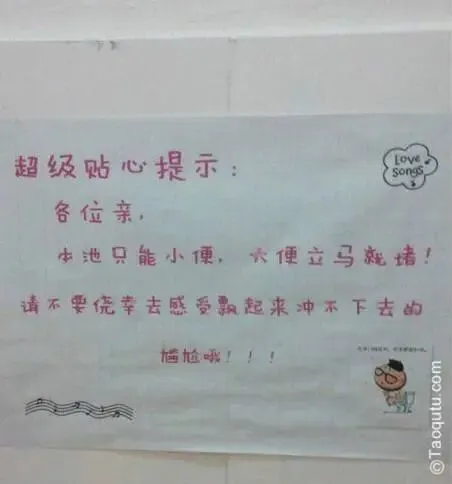 超级贴心提示:
Love
Songs
各位亲,
本池只能小便,大便立马就堵!
请不要侥幸去感受飘起来冲不下去的
尴尬哦!!!
©Taoqutu.com